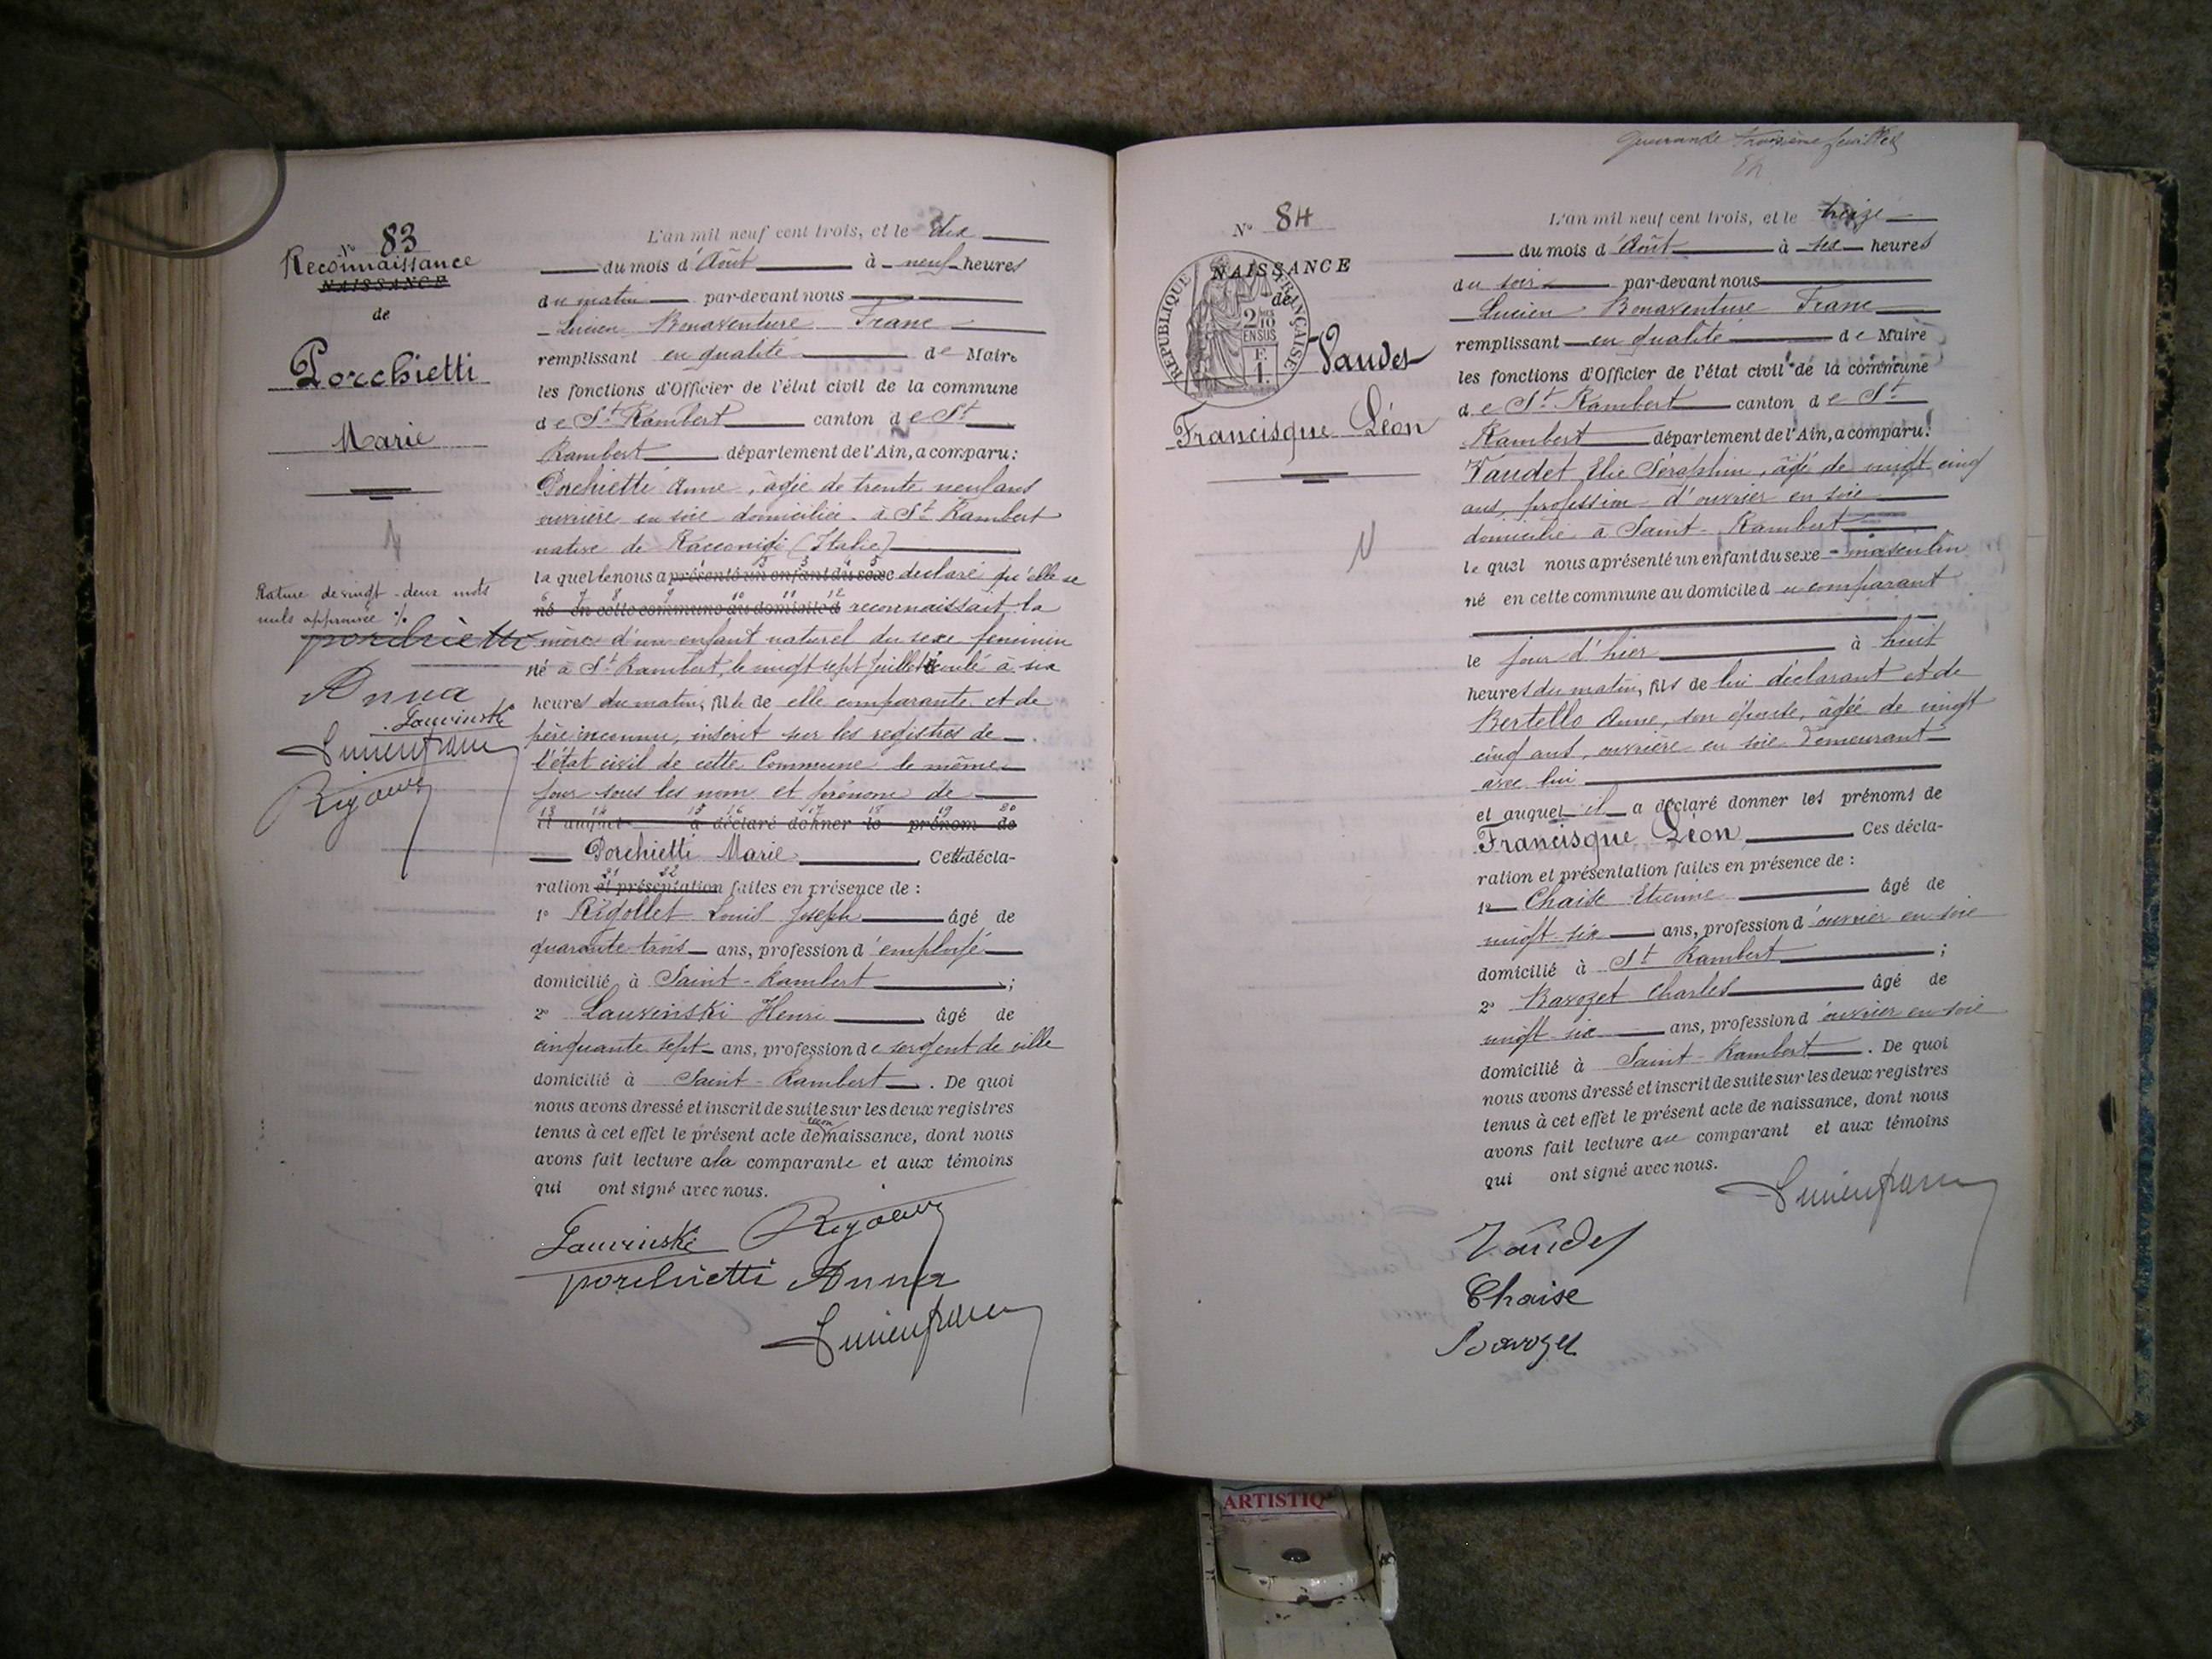 N° 83
Reconnaissance
NAISSANCE
de
Porchietti
Marie
Rature de vingt-deux mots
nuls approuvée ./.
porchietti
Anna
Lauvinski
Lucien franc
L'an mil neuf cent trois, et le dix
du mois d'Août à neuf heures
du matin par-devant nous
Lucien Bonaventure Franc
remplissant en qualité de Maire
les fonctions d'Officier de l'état civil de la commune
de St Rambert canton de St
Rambert département de l'Ain, a comparu :
Porchietti Anne, âgée de trente neuf ans
ouvrière en soie domiciliée à St Rambert
native de Racconigi (Italie)
laquelle nous a présenté un enfant du sexe déclaré qu'elle se
né en cette commune au domicile d reconnaissait la
mère d'un enfant naturel du sexe féminin
né à St Rambert, le vingt sept juillet écoulé à six
heures du matin, fille de elle comparante et de
père inconnu, inscrit sur les registres de
l'état civil de cette Commune le même
jour sous les nom et prénom de
et auquel a déclaré donner le prénom de
Porchietti Marie Cette décla-
ration et présentation faites en présence de :
1° Rigollet Louis Joseph âgé de
quarante trois ans, profession d'employé
domicilié à Saint-Rambert ;
2° Lauvinski Henri âgé de
cinquante sept ans, profession de sergent de ville
domicilié à Saint-Rambert . De quoi
nous avons dressé et inscrit de suite sur les deux registres
tenus à cet effet le présent acte de reconnaissance, dont nous
avons fait lecture à la comparante et aux témoins
qui ont signé avec nous.
Lauvinski
porchietti Anna
Lucien franc
quarante troisième feuillet
N° 84
NAISSANCE
de
RÉPUBLIQUE FRANÇAISE
2/10
EN SUS
F.
1.
Vaudet
Francisque Léon
N
L'an mil neuf cent trois, et le treize
du mois d'Août à six heures
du soir par-devant nous
Lucien Bonaventure Franc
remplissant en qualité de Maire
les fonctions d'Officier de l'état civil de la commune
de St Rambert canton de St
Rambert département de l'Ain, a comparu :
Vaudet Elie Séraphin, âgé de vingt cinq
ans, profession d'ouvrier en soie
domicilié à Saint-Rambert
lequel nous a présenté un enfant du sexe masculin
né en cette commune au domicile du comparant
le jour d'hier à huit
heures du matin, fils de lui déclarant et de
Bertello Anne, son épouse, âgée de vingt
cinq ans, ouvrière en soie demeurant
avec lui
et auquel il a déclaré donner les prénoms de
Francisque Léon Ces décla-
ration et présentation faites en présence de :
1° Chaise Etienne âgé de
vingt six ans, profession d'ouvrier en soie
domicilié à St Rambert ;
2° Ravozet Charles âgé de
vingt six ans, profession d'ouvrier en soie
domicilié à Saint-Rambert . De quoi
nous avons dressé et inscrit de suite sur les deux registres
tenus à cet effet le présent acte de naissance, dont nous
avons fait lecture au comparant et aux témoins
qui ont signé avec nous.
Lucien franc
Vaudet
Chaise
Ravozet
ARTISTIQ